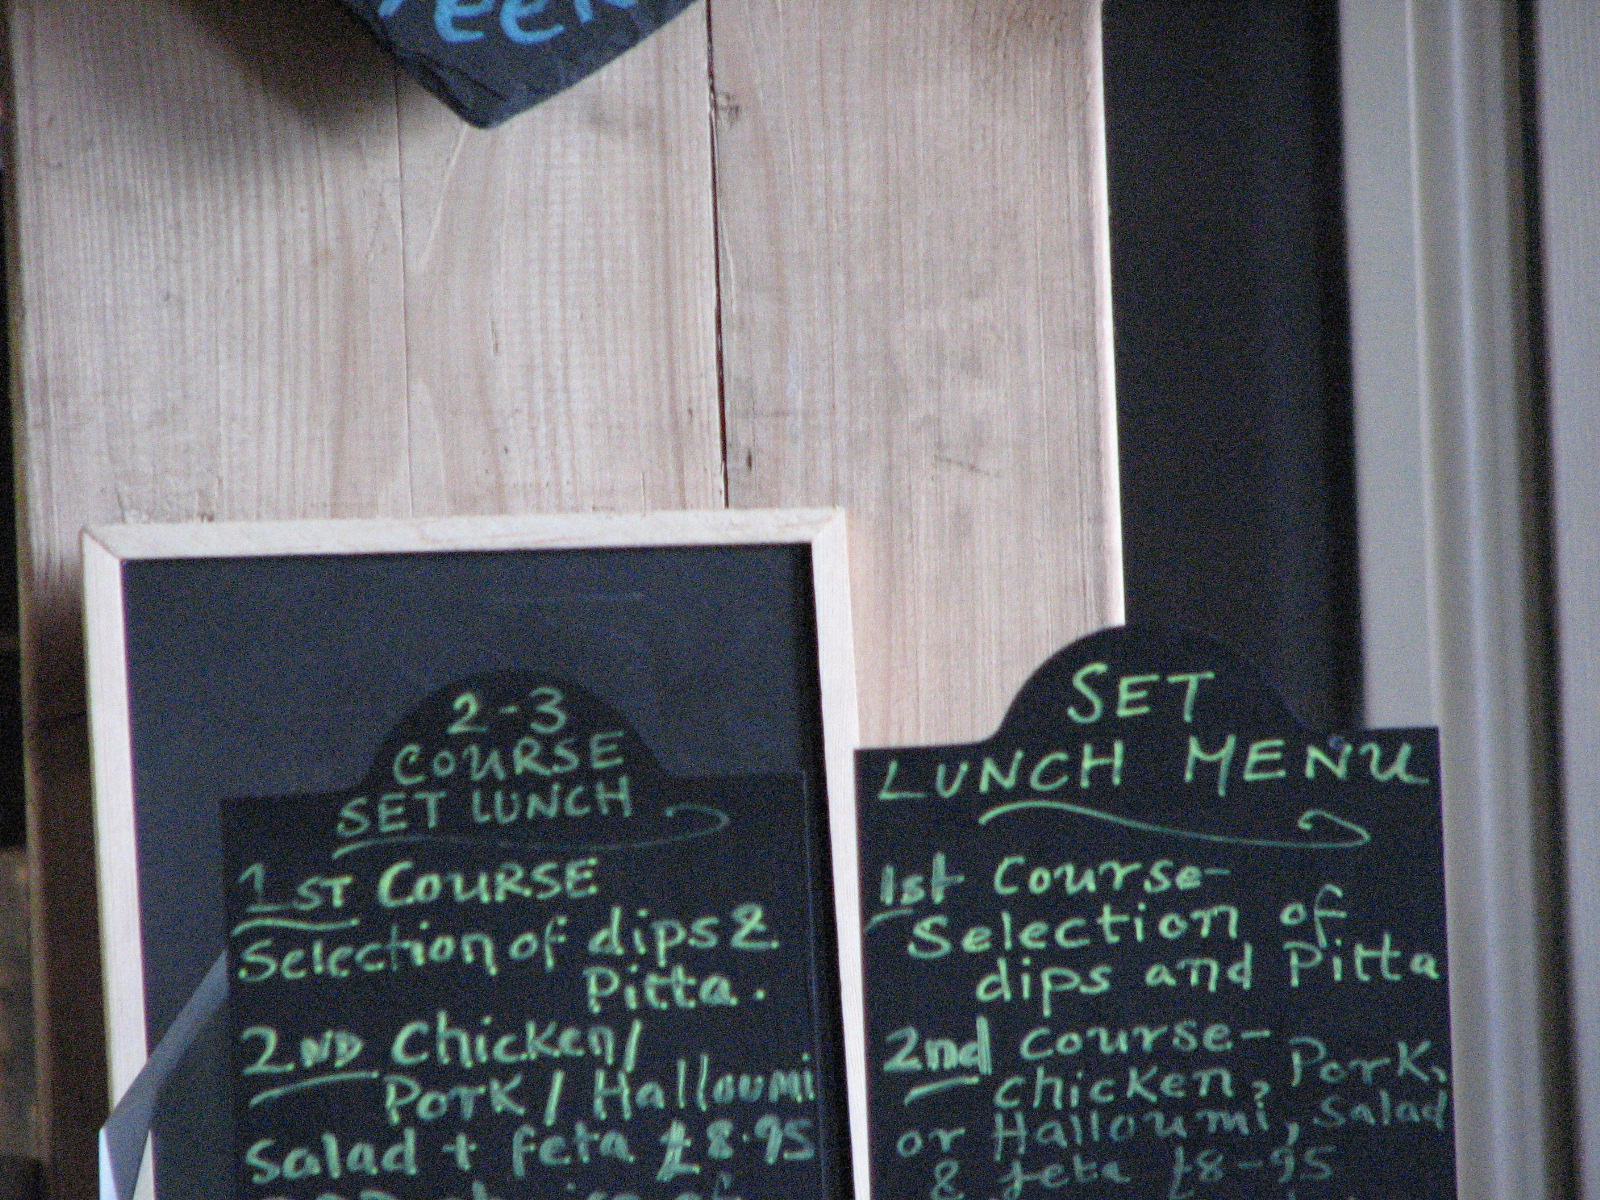 2-3
COURSE
SET LUNCH
1ST COURSE
Selection of dips &
Pitta.
2ND Chicken/
Pork / Halloumi
Salad + feta £8.95
SET
LUNCH MENU
1st Course-
Selection of
dips and Pitta
2nd Course-
Chicken, Pork,
or Halloumi, Salad
& feta £8-95